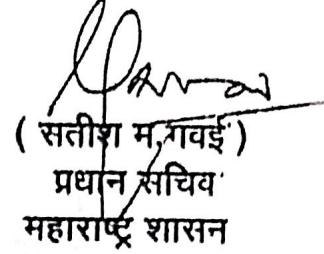 ( सतीश म. गवई )
प्रधान सचिव
महाराष्ट्र शासन